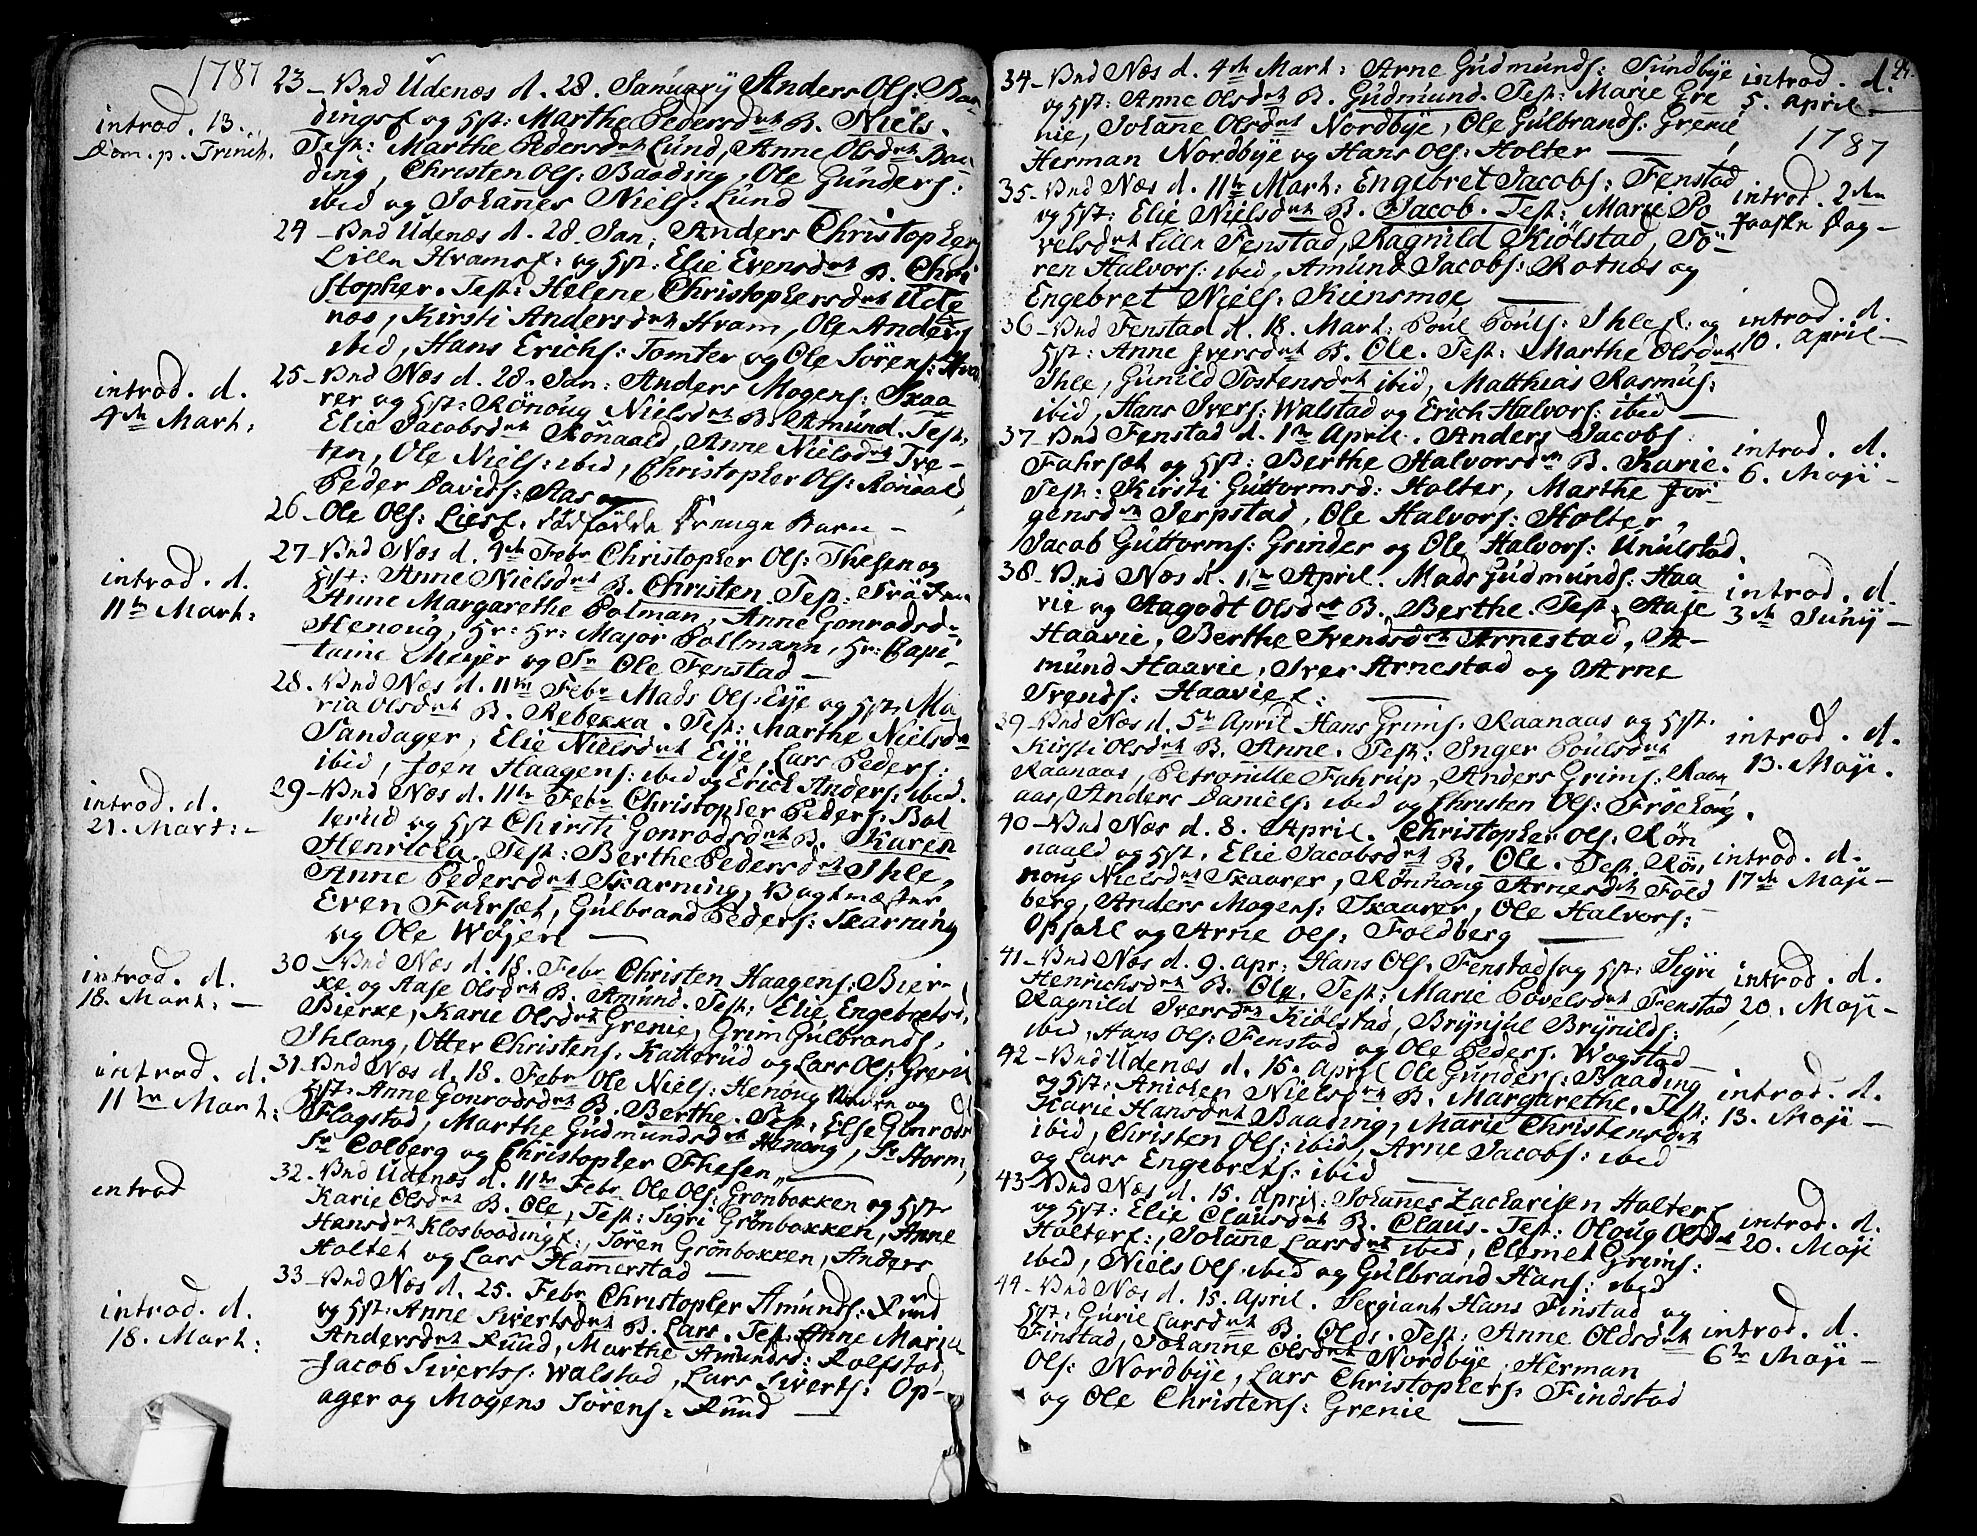 1787
introd. 13.
Dom. p. Trinit.
23 - Vnd Udenæs d. 28. January Anders Ols: Baa
dingsf og Hst: Marthe Pedersdtr B. Niels.
Test: Marthe Pedersdtr Lund, Anne Olsdtr Baa
ding, Christen Ols: Baading, Ole Gunders:
ibid og Johannes Niels: Lund
24 - Vnd Udenæs d. 28. Jan: Anders Christophers
Lille Hramsf: og Hst: Elie Evensdtr B. Chri
stopher. Test: Helene Christophersdtr Ude
næs, Kirsti Andersdtr Hram, Ole Anders
ibid, Hans Erichs: Tomter og Ole Sørens: Hram
introd. d.
4de Mart:
25 - Vnd Næs d. 28. Jan: Anders Mogens: Skaa
rer og Hst: Rønoug Nielsdtr B. Amund. Test:
Elie Jacobsdtr Rönaald, Anne Nielsdtr Tve-
ten, Ole Niels: ibid, Christopher Ols: Rönaald
Peder Davids: Aas
26 - Ole Ols: Liesf. dödfödde Drenge Barn -
introd. d.
11te Mart:
27 - Vnd Næs d. 4de Febr Christopher Ols: Thesen og
Hst: Anne Nielsdtr B. Christen. Test: Frö
Anne Margarethe Polman, Anne Gonradsd:
Henoug, Hr: Hr: Major Pollmann, Hr: Capi-
taine Meyer og Sr Ole Fenstad -
28. Vnd Næs d. 11te Febr Mads Ols: Eye og Hst: Ma
ria Olsdtr B. Rebekka. Test: Marthe Nielsdtr
Sandager, Elie Nielsdtr Eye, Lars Peders:
ibid, Joen Haagens: ibid og Erich Anders: ibid.
introd. d.
21. Mart: -
29 - Vnd Næs d. 11te Febr Christopher Peders: Bol
lerud og Hst Chirsti Gonradsdtr B. Karen
Henricha. Test: Berthe Pedersdtr Ihle,
Anne Pedersdtr Skarning, Vagtmester
Even Fahrsæt, Gulbrand Peders: Skarning
og Ole Wøyen
introd. d.
18. Mart: -
30 - Vnd Næs d. 18. Febr Christen Haagens: Bier-
ke og Aase Olsdtr B. Amund. Test: Elie Engebrets:
Bierke, Karie Olsdtr Grenie, Grim Gulbrands:
Ihlang, Otter Christens: Katterud og Lars Ols: Greni
introd. d.
11te Mart:
31 - Vnd Næs d. 18. Febr Ole Niels: Henoug og
Hst: Anne Gonradsdtr B. Berthe. Test: Else Gonrads
Flagstad, Marthe Gudmundsdtr Henoug, Sr Storm,
Sr Colberg og Christopher Thesen
introd
32. Vnd Udenæs d. 11te Febr Ole Ols: Grønbakken og Hst
Karie Olsdtr B. Ole, Test: Sigri Grønbakken, Anne
Hansdtr Klosbaadingf:, Søren Grønbakken, Anders
Haltet og Lars Hamerstad
introd. d.
18. Mart:
33 - Vnd Næs d. 25. Febr Christopher Amunds: Ruud
og Hst: Anne Sivertsdtr B. Lars. Test: Anne Maria
Andersdtr Ruud, Marthe Amundsd: Rolfstad,
Jacob Siverts: Walstad, Lars Siverts: Op-
ager og Mogens Sørens: Ruud
34 - Vnd Næs d. 4de Mart: Arne Gudmunds: Sundbye
og Hst: Anne Olsdtr B. Gudmund. Test: Marie Gre
nie, Johanne Olsdtr Nordbye, Ole Gulbrands: Grenie,
Herman Nordbye og Hans Ols: Holter
introd. d.
5. April -
1787
35 - Vnd Næs d. 11te Mart: Engebret Jacobs: Fenstad
og Hst: Elie Nielsdtr B. Jacob. Test: Marie Po
velsdtr Lille Fenstad, Ragnild Kiölstad, Sö-
ren Halvors: ibid, Amund Jacobs: Rotnæs og
Engebret Niels: Kiensmoe
introd. 2den
Paaske Dag -
36 - Vnd Fenstad d. 18. Mart: Poul Pouls: Ihlef: og
Hst: Anne Iversdtr B. Ole. Test: Marthe Olsdtr
Ihle, Gunild Tostensdtr ibid, Matthias Rasmus:
ibid, Hans Ivers: Walstad og Erich Halvors: ibid -
introd. d.
10. April -
37 - Vnd Fenstad d. 1te April. Anders Jacobs:
Fahrsæt og Hst: Berthe Halvorsdtr B. Karie.
Test: Kirsti Guttormsd: Holter, Marthe Jör
gensdtr Serpstad, Ole Halvors: Holter,
Jacob Guttorms: Grinder og Ole Halvors: Unulstad.
introd. d.
6. Maji -
38 - Vnd Næs d. 1te April. Mads Gudmunds: Haa
vie og Aagodt Olsdtr B. Berthe. Test: Aase
Haavie, Berthe Svendsdtr Arnestad, A-
mund Haavie, Iver Arnestad og Arne
Svends: Haavief:
introd. d.
3de Juny -
39 - Vnd Næs d. 5te April Hans Grims: Raanaas og Hst.
Kirsti Olsdtr B. Anne. Test: Inger Poulsdtr
Raanaas, Petronille Fahrup, Anders Grims: Raan
aas, Anders Daniels: ibid og Christen Ols: Frøehoug.
introd. d.
13. Maji.
40 - Vnd Næs d. 8. April. Christopher Ols: Røn
naald og Hst. Elie Jacobsdtr B. Ole. Test. Røn
noug Nielsdtr Skaarer, Rønnoug Arnesdtr Fold
berg, Anders Mogens: Skaarer, Ole Halvors:
Opsahl og Arne Ols: Foldberg
introd. d.
17de Maji -
41 - Vnd Næs d. 9. Apr: Hans Ols: Fenstadf og Hst: Sigri
Henrichsdtr B. Ole. Test: Marie Povelsdtr Fenstad,
Ragnild Iversdtr Kiölstad, Brynjul Brynilds:
ibid, Hans Ols: Fenstad og Ole Peders. Wagstad
introd. d.
20. Maji -
42 - Vnd Udenæs d. 15. April Ole Gunders: Baading
og Hst: Anichen Nielsdtr B. Margarethe. Test:
Karie Hansdtr Baading, Marie Christensdtr
ibid, Christen Ols: ibid, Arne Jacobs: ibid
og Lars Engebrets: ibid
introd. d.
13. Maji -
43 - Vnd Næs d. 15. April: Johanes Zachariesen Haltersf
og Hst: Elie Clausdtr B. Claus. Test: Oloug Olsdtr
Halterf:, Johanne Larsdtr ibid, Clemet Grims:
ibid, Niels Ols: ibid og Gulbrand Hans: ibid
introd. d.
20. Maji
44 - Vnd Næs d. 15. April. Sergiant Hans Finstad og
Hst: Gurie Larsdtr B. Olds. Test: Anne Oldsdtr
Finstad, Johanne Olsdtr Nordbye, Herman
Ols: Nordbye, Lars Christophers: Findstad
og Ole Christens: Grenie
introd. d.
6te Maji -